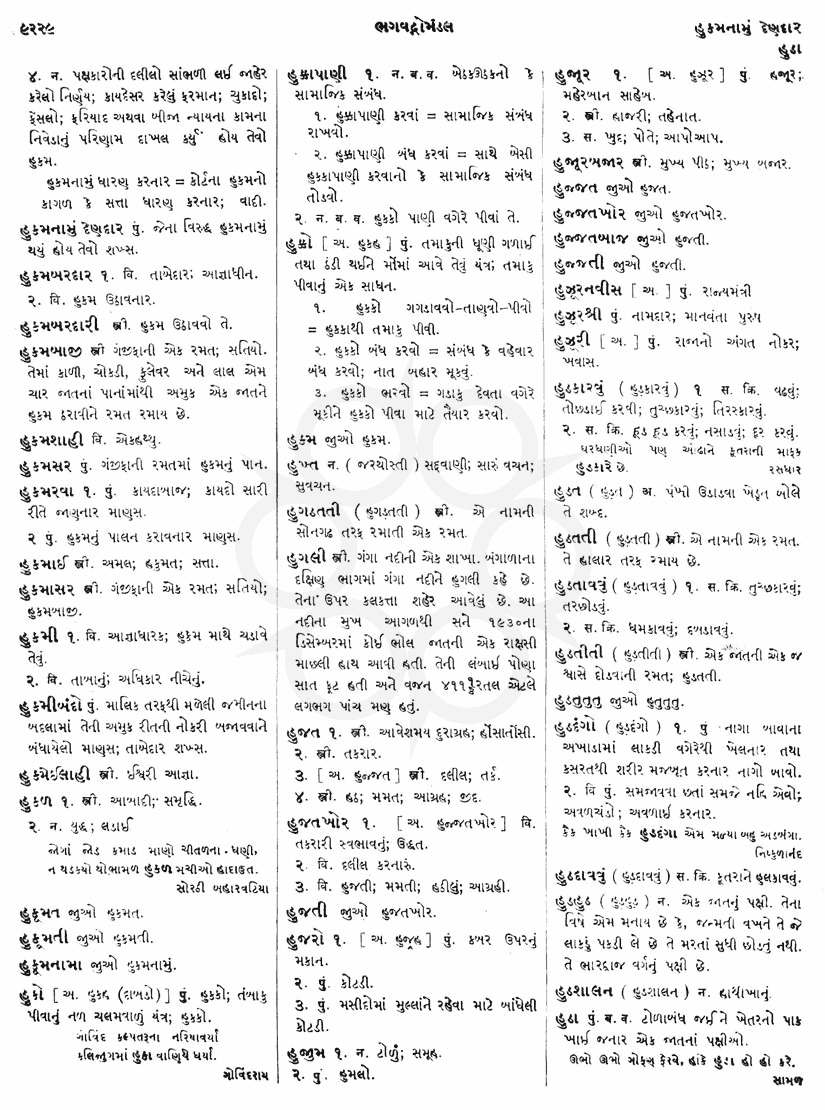 ૯૨૨૯
ભગવદ્ગોમંડલ
હુકમનામું દેણદાર
હુડા
૪. ન. પક્ષકારોની દલીલો સાંભળી લઈ જાહેર
કરેલો નિર્ણય; કાયદેસર કરેલું ફરમાન; ચુકાદો;
ફેંસલો; ફરિયાદ અથવા બીજા ન્યાયના કામના
નિવેડાનું પરિણામ દાખલ કર્યું હોય તેવો
હુકમ.
હુકમનામું ધારણ કરનાર = કોર્ટના હુકમનો
કાગળ કે સત્તા ધારણ કરનાર; વાદી.
હુકમનામું દેણદાર પું. જેના વિરુદ્ધ હુકમનામું
થયું હોય તેવો શખ્સ.
હુકમબરદાર ૧. વિ. તાબેદાર; આજ્ઞાધીન.
૨. વિ. હુકમ ઉઠાવનાર.
હુકમબરદારી સ્ત્રી. હુકમ ઉઠાવવો તે.
હુકમબાજી સ્ત્રી ગંજીફાની એક રમત; સતિયો.
તેમાં કાળી, ચોકડી, ફુલેવર અને લાલ એમ
ચાર જાતનાં પાનાંમાંથી અમુક એક જાતને
હુકમ ઠરાવીને રમત રમાય છે.
હુકમશાહી વિ. એકહથ્થુ.
હુકમસર પું. ગંજીફાની રમતમાં હુકમનું પાન.
હુકમરવા ૧. પું. કાયદાબાજ; કાયદો સારી
રીતે જાણનાર માણુસ.
૨ પું. હુકમનું પાલન કરાવનાર માણુસ.
હુકમાઈ સ્ત્રી. અમલ; હકુમત; સત્તા.
હુકમાસર સ્ત્રી. ગંજીફાની એક રમત; સતિયો;
હુકમબાજી.
હુકમી ૧. વિ. આજ્ઞાધારક; હુકમ માથે ચડાવે
તેવું.
૨. વિ. તાબાનું; અધિકાર નીચેનું.
હુકમીબંદો પું. માલિક તરફથી મળેલી જમીનના
બદલામાં તેની અમુક રીતની નોકરી બજાવવાને
બંધાયેલો માણુસ; તાબેદાર શખ્સ.
હુકમેઈલાહી સ્ત્રી. ઈશ્વરી આજ્ઞા.
હુકળ ૧. સ્ત્રી. આબાદી; સમૃદ્ધિ.
૨. ન. યુદ્ધ; લડાઈ
જોગાં જોડ કમાડ માણો ચીતળના ધણી,
ન થડક્યો થોભામળ હુકળ મચીઓ હાદાઉત.
સોરઠી બહારવટિયા
હુકૂમત જુઓ હકુમત.
હુકૂમતી જુઓ હકુમતી.
હુકૂમનામા જુઓ હુકમનામું.
હુકો [ અ. હુકહ (દાબડો) ] પું. હુક્કો; તંબાકુ
પીવાનું નળ ચલમવાળું યંત્ર; હુક્કો.
ગોવિંદ કલ્પતરુના નરિયાવર્યા
કલિજુગમાં હુકા વાણિયે ધર્યા.
ગોવિંદરાય
હુક્કાપાણી ૧. ન. બ. વ. બેઠકઊઠકનો કે
સામાજિક સંબંધ.
૧. હુક્કાપાણી કરવાં = સામાજિક સંબંધ
રાખવો.
૨. હુક્કાપાણી બંધ કરવાં = સાથે બેસી
હુક્કાપાણી કરવાનો કે સામાજિક સંબંધ
તોડવો.
૨. ન. બ. વ. હુક્કો પાણી વગેરે પીવાં તે.
હુક્કો [ અ. હુકહ ] પું. તમાકુની ધૂણી ગળાઈ
તથા ઠંડી થઈને મોંમાં આવે તેવું યંત્ર; તમાકુ
પીવાનું એક સાધન.
૧. હુક્કો ગગડાવવો-તાણવો-પીવો
= હુક્કાથી તમાકુ પીવી.
૨. હુક્કો બંધ કરવો = સંબંધ કે વહેવાર
બંધ કરવો; નાત બહાર મૂકવું.
૩. હુક્કો ભરવો = ગડાકુ દેવતા વગેરે
મૂકીને હુક્કો પીવા માટે તૈયાર કરવો.
હુક્મ જુઓ હુકમ.
હુખ્ત ન. ( જરથોસ્તી ) સદ્દવાણી; સારું વચન;
સુવચન.
હુગડતતી ( હુગડ઼તતી ) સ્ત્રી. એ નામની
સોનગઢ તરફ રમાતી એક રમત.
હુગલી સ્ત્રી. ગંગા નદીની એક શાખા. બંગાળાના
દક્ષિણ ભાગમાં ગંગા નદીને હુગલી કહે છે.
તેના ઉપર કલકત્તા શહેર આવેલું છે. આ
નદીના મુખ આગળથી સને ૧૯૩૦ના
ડિસેમ્બરમાં કોઈ ભોલ જાતની એક રાક્ષસી
માછલી હાથ આવી હતી. તેની લંબાઈ પોણા
સાત ફૂટ હતી અને વજન રતલ એટલે
લગભગ પાંચ મણ હતું.
હુજત ૧. સ્ત્રી. આવેશમય દુરાગ્રહ; હોંસાતોંસી.
૨. સ્ત્રી. તકરાર.
૩. [ અ. હુજ્જત ] સ્ત્રી. દલીલ; તર્ક.
૪. સ્ત્રી. હઠ; મમત; આગ્રહ; જીદ.
હુજતખોર ૧. [ અ. હુજ્જતખોર ] વિ.
તકરારી સ્વભાવનું; ઉદ્ધત.
૨. વિ. દલીલ કરનારું.
૩. વિ. હુજતી; મમતી; હઠીલું; આગ્રહી.
હુજતી જુઓ હુજતખોર.
હુજરો ૧. [ અ. હુજ્રહ ] પું. કબર ઉપરનું
મકાન.
૨. પું. કોટડી.
૩. પું. મસીદોમાં મુલ્લાંને રહેવા માટે બાંધેલી
કોટડી.
હુજુમ ૧. ન. ટોળું; સમૂહ.
૨. પું. હુમલો.
હુજૂર ૧. [ અ. હુઝૂર ] પું. હજૂર;
મહેરબાન સાહેબ.
૨. સ્ત્રી. હાજરી; તહેનાત.
૩. સ. ખુદ; પોતે; આપોઆપ.
હુજૂરબજાર સ્ત્રી. મુખ્ય પીઠ; મુખ્ય બજાર.
હુજ્જત જુઓ હુજત.
હુજ્જતખોર જુઓ હુજતખોર.
હુજ્જતબાજ જુઓ હુજતી.
હુજ્જતી જુઓ હુજતી.
હુઝૂરનવીસ [ અ. ] પું. રાજ્યમંત્રી
હુઝૂરશ્રી પું. નામદાર; માનવંતા પુરુષ
હુઝૂરી [ અ. ] પું. રાજાનો અંગત નોકર;
ખવાસ.
હુડકારવું ( હુડ઼કારવું ) ૧ સ. ક્રિ. વઢવું;
તોછડાઈ કરવી; તુચ્છકારવું; તિરસ્કારવું.
૨. સ. ક્રિ. હૂડ હૂડ કરવું; નસાડવું; દૂર કરવું.
ઘરધણીઓ પણ ઓઢાને કૂતરાની માફક
હુડકારે છે.
રસધાર
હુડત ( હુડ઼ત ) અ. પંખી ઉડાવવા ખેડૂત બોલે
તે શબ્દ.
હુડતતી ( હુડ઼તતી ) સ્ત્રી. એ નામની એક રમત.
તે હાલાર તરફ રમાય છે.
હુડતાવવું ( હુડ઼તાવવું ) ૧. સ. ક્રિ. તુચ્છકારવું;
તરછોડવું.
૨. સ. ક્રિ. ધમકાવવું; દબડાવવું.
હુડતીતી ( હુડ઼તીતી ) સ્ત્રી. એક જાતની એક જ
શ્વાસે દોડવાની રમત; હુડતતી.
હુડતુતુતુ જુઓ હુતુતુતુ.
હુડદંગો ( હુડ઼દંગો ) ૧. પું નાગા બાવાના
અખાડામાં લાકડી વગેરેથી ખેલનાર તથા
કસરતથી શરીર મજબૂત કરનાર નાગો બાવો.
૨. વિ પું. સમજાવવા છતાં સમજે નહિ એવો;
અવળચંડો; અવળાઈ કરનાર.
કૈંક ખાખી કૈંક હુડદંગા એમ મળ્યા બહુ અડબંગા.
નિષ્કુળાનંદ
હુડદાવવું ( હુડ઼દાવવું ) સ. ક્રિ. કૂતરાને હુલકાવવું.
હુડહુડ ( હુડ઼હુડ઼ ) ન. એક જાતનું પક્ષી. તેના
વિષે એમ મનાય છે કે, જન્મતી વખતે તે જે
લાકડું પકડી લે છે તે મરતાં સુધી છોડતું નથી.
તે ભારદ્વાજ વર્ગનું પક્ષી છે.
હુડશાલન ( હુડ઼શાલન ) ન. હાથીખાનું.
હુડા પું. બ. વ. ટોળાબંધ જઈને ખેતરનો પાક
ખાઈ જનાર એક જાતનાં પક્ષીઓ.
ઊભો ઊભો ગોફણ ફેરવે, હાંકે હુડા હો હો કરે.
સામળ